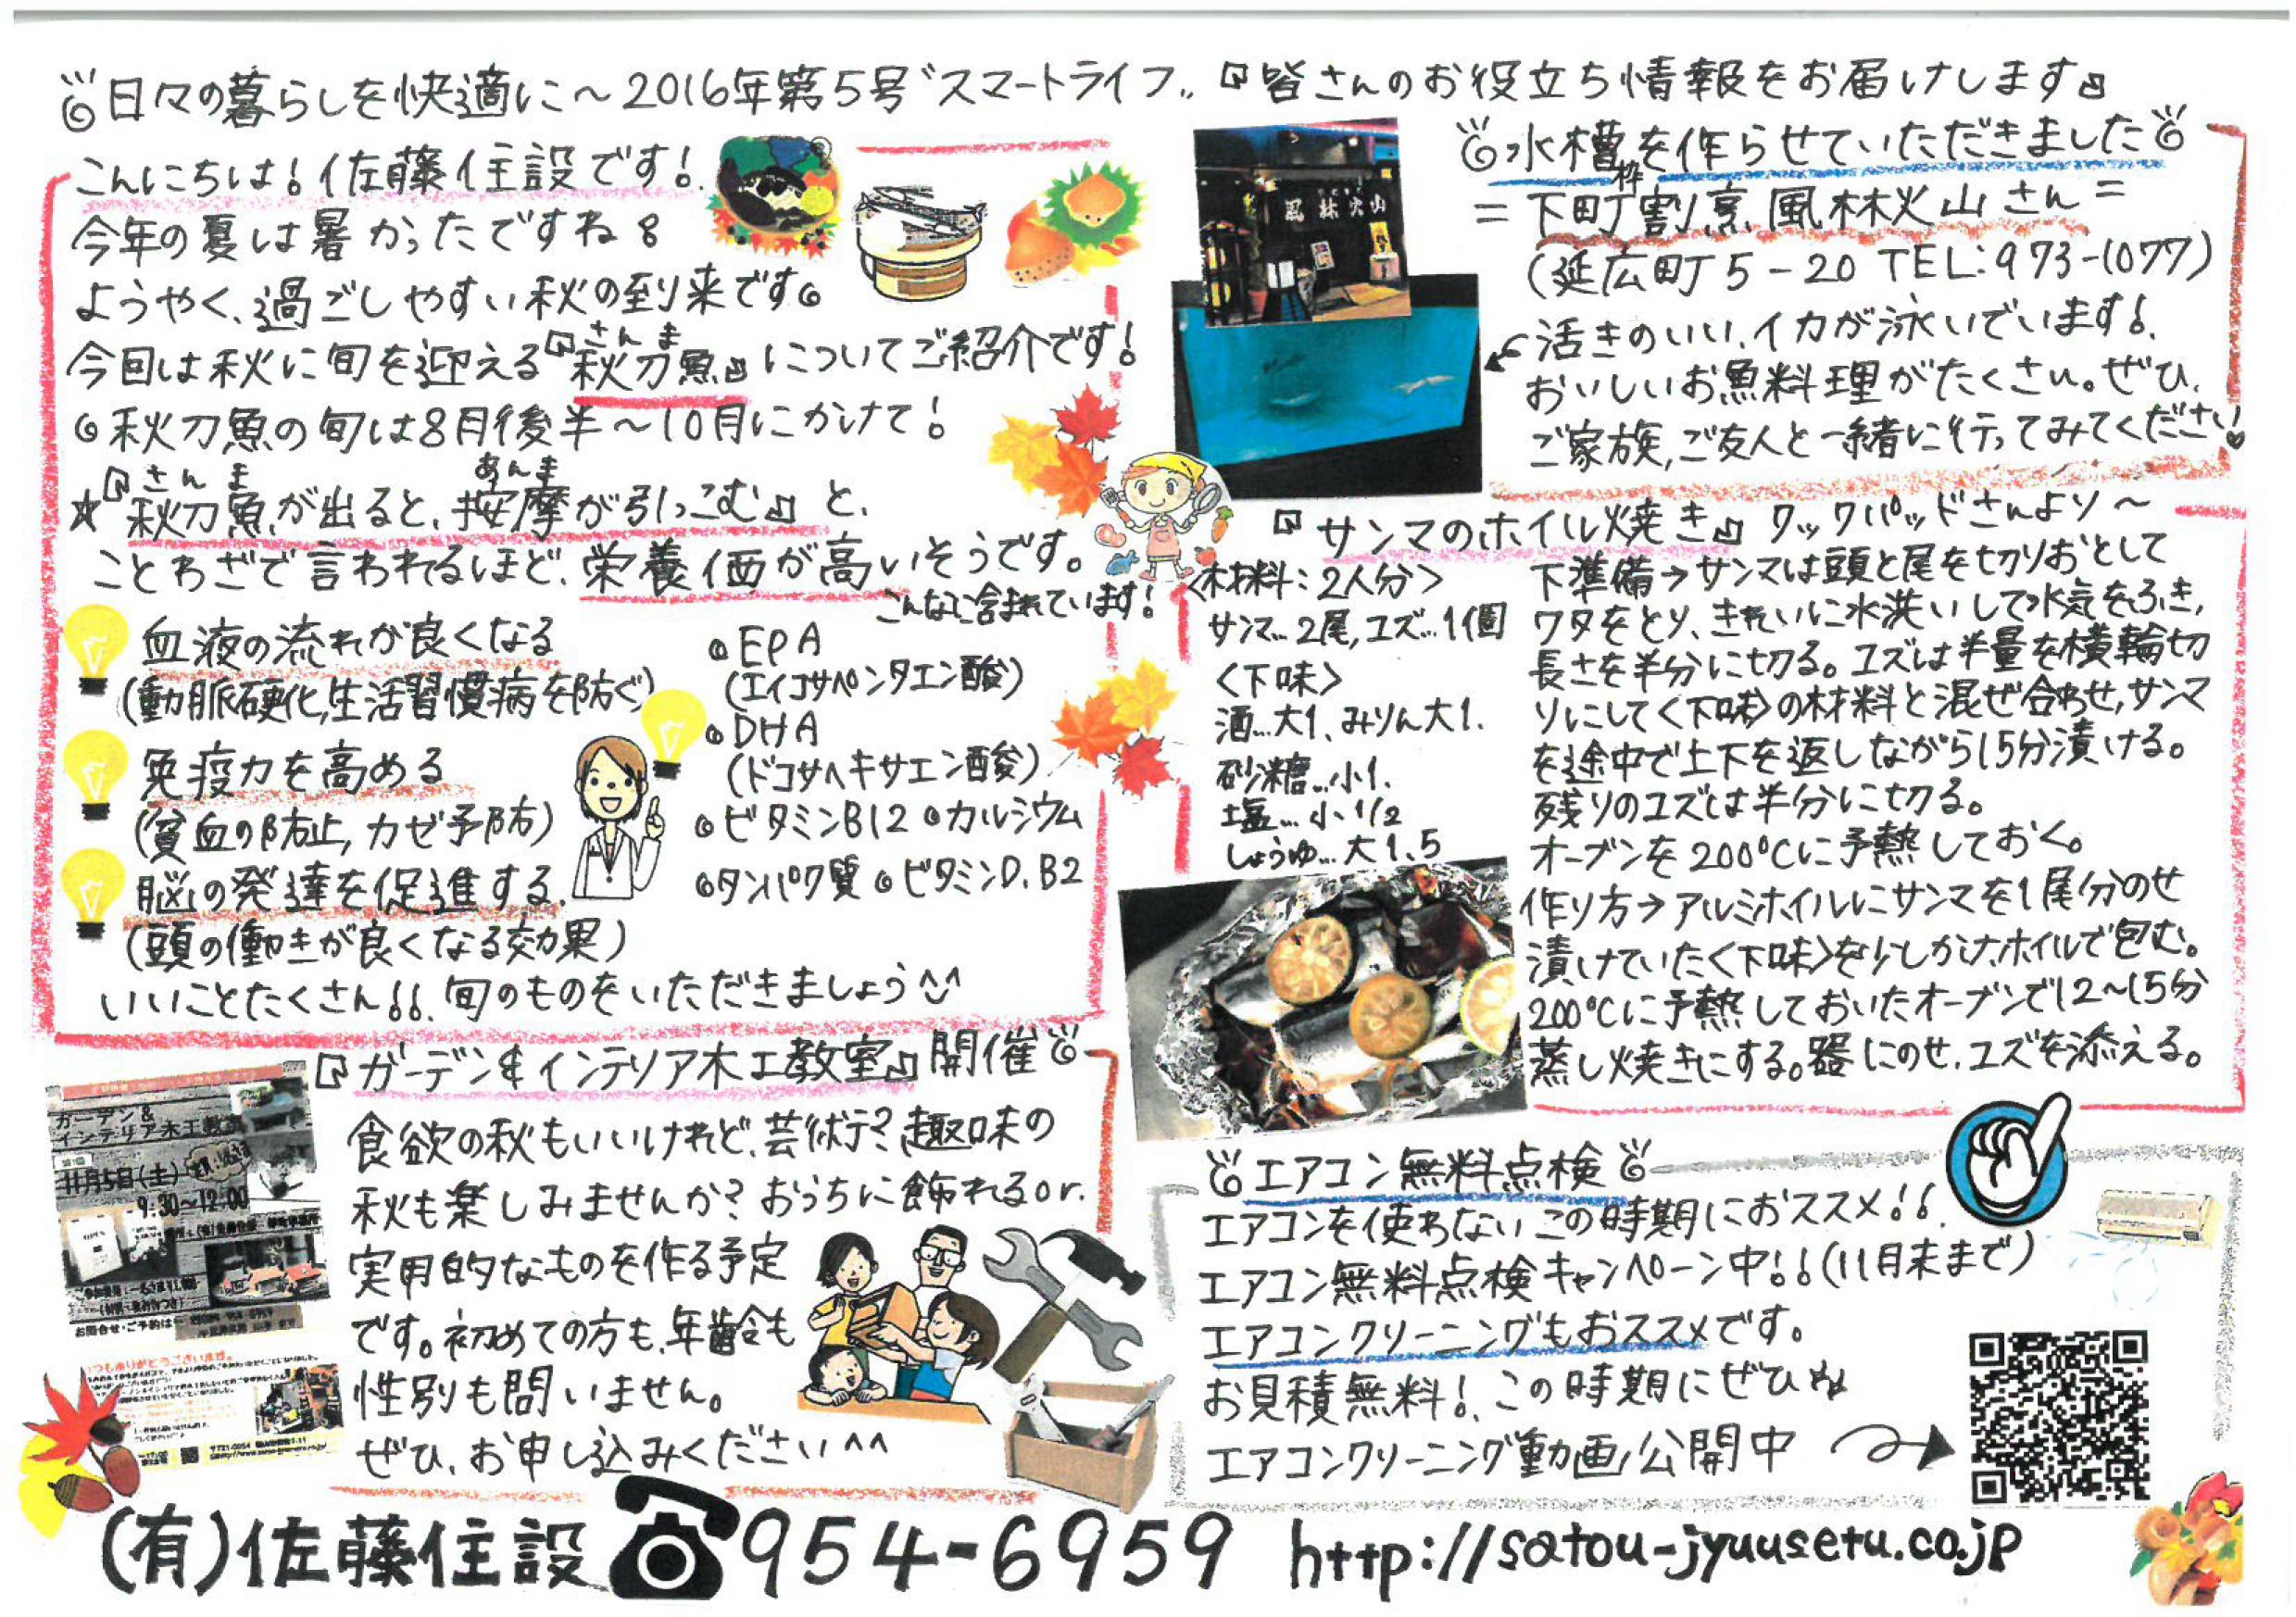 日々の暮らしを快適に～2016年第5号〝スマートライフ〟『皆さんのお役立ち情報をお届けします』
こんにちは！佐藤住設です！
今年の夏は暑かったですね。
ようやく、過ごしやすい秋の到来です。
さんま
今回は秋に旬を迎える『秋刀魚』についてご紹介です！
◎秋刀魚の旬は8月後半～10月にかけて！
さんま あんま
☆『秋刀魚が出ると、按摩が引っこむ』と、
ことわざで言われるほど、栄養価が高いそうです。
こんなに含まれています！
血液の流れが良くなる
(動脈硬化,生活習慣病を防ぐ)
免疫力を高める
(貧血の防止,カゼ予防)
脳の発達を促進する
(頭の働きが良くなる効果)
◎EPA
(エイコサペンタエン酸)
◎DHA
(ドコサヘキサエン酸)
◎ビタミンB12 ◎カルシウム
◎タンパク質 ◎ビタミンD.B2
いいことたくさん!!旬のものをいただきましょう^^
風林火山
水槽を作らせていただきました
枠
＝下町割烹 風林火山さん＝
(延広町5-20 TEL:973-1077)
活きのいい、イカが泳いでいます！
おいしいお魚料理がたくさん。ぜひ、
ご家族,ご友人と一緒に行ってみてください♥
『サンマのホイル焼き』クックパッドさんより～
<材料:2人分>
サンマ…2尾,ユズ…1個
<下味>
酒…大1、みりん大1.
砂糖…小1.
塩…小1/2
しょうゆ…大1.5
下準備→サンマは頭と尾を切りおとして
ワタをとり、きれいに水洗いして水気をふき,
長さを半分に切る。ユズは半量を横輪切
りにして<下味>の材料と混ぜ合わせ,サンマ
を途中で上下を返しながら15分漬ける。
残りのユズは半分に切る。
オーブンを200℃に予熱しておく。
作り方→アルミホイルにサンマを1尾分のせ
漬けていた<下味>を少しかけ,ホイルで包む。
200℃に予熱しておいたオーブンで12～15分
蒸し焼きにする。器にのせ、ユズを添える。
『ガーデン&インテリア木工教室』開催
ガーデン&
インテリア木工教室
11月5日(土)
9:30～12:00
お問合せ・ご予約は
いつもありがとうございます。
食欲の秋もいいけれど、芸術?趣味の
秋も楽しみませんか？おうちに飾れるor.
実用的なものを作る予定
です。初めての方も、年齢も
性別も問いません。
ぜひ、お申し込みください^^
エアコン無料点検
エアコンを使わないこの時期におススメ!!
エアコン無料点検キャンペーン中!!(11月末まで)
エアコンクリーニングもおススメです。
お見積無料！この時期にぜひ
エアコンクリーニング動画公開中
(有)佐藤住設 ☎954-6959 http://satou-jyuusetu.co.jp